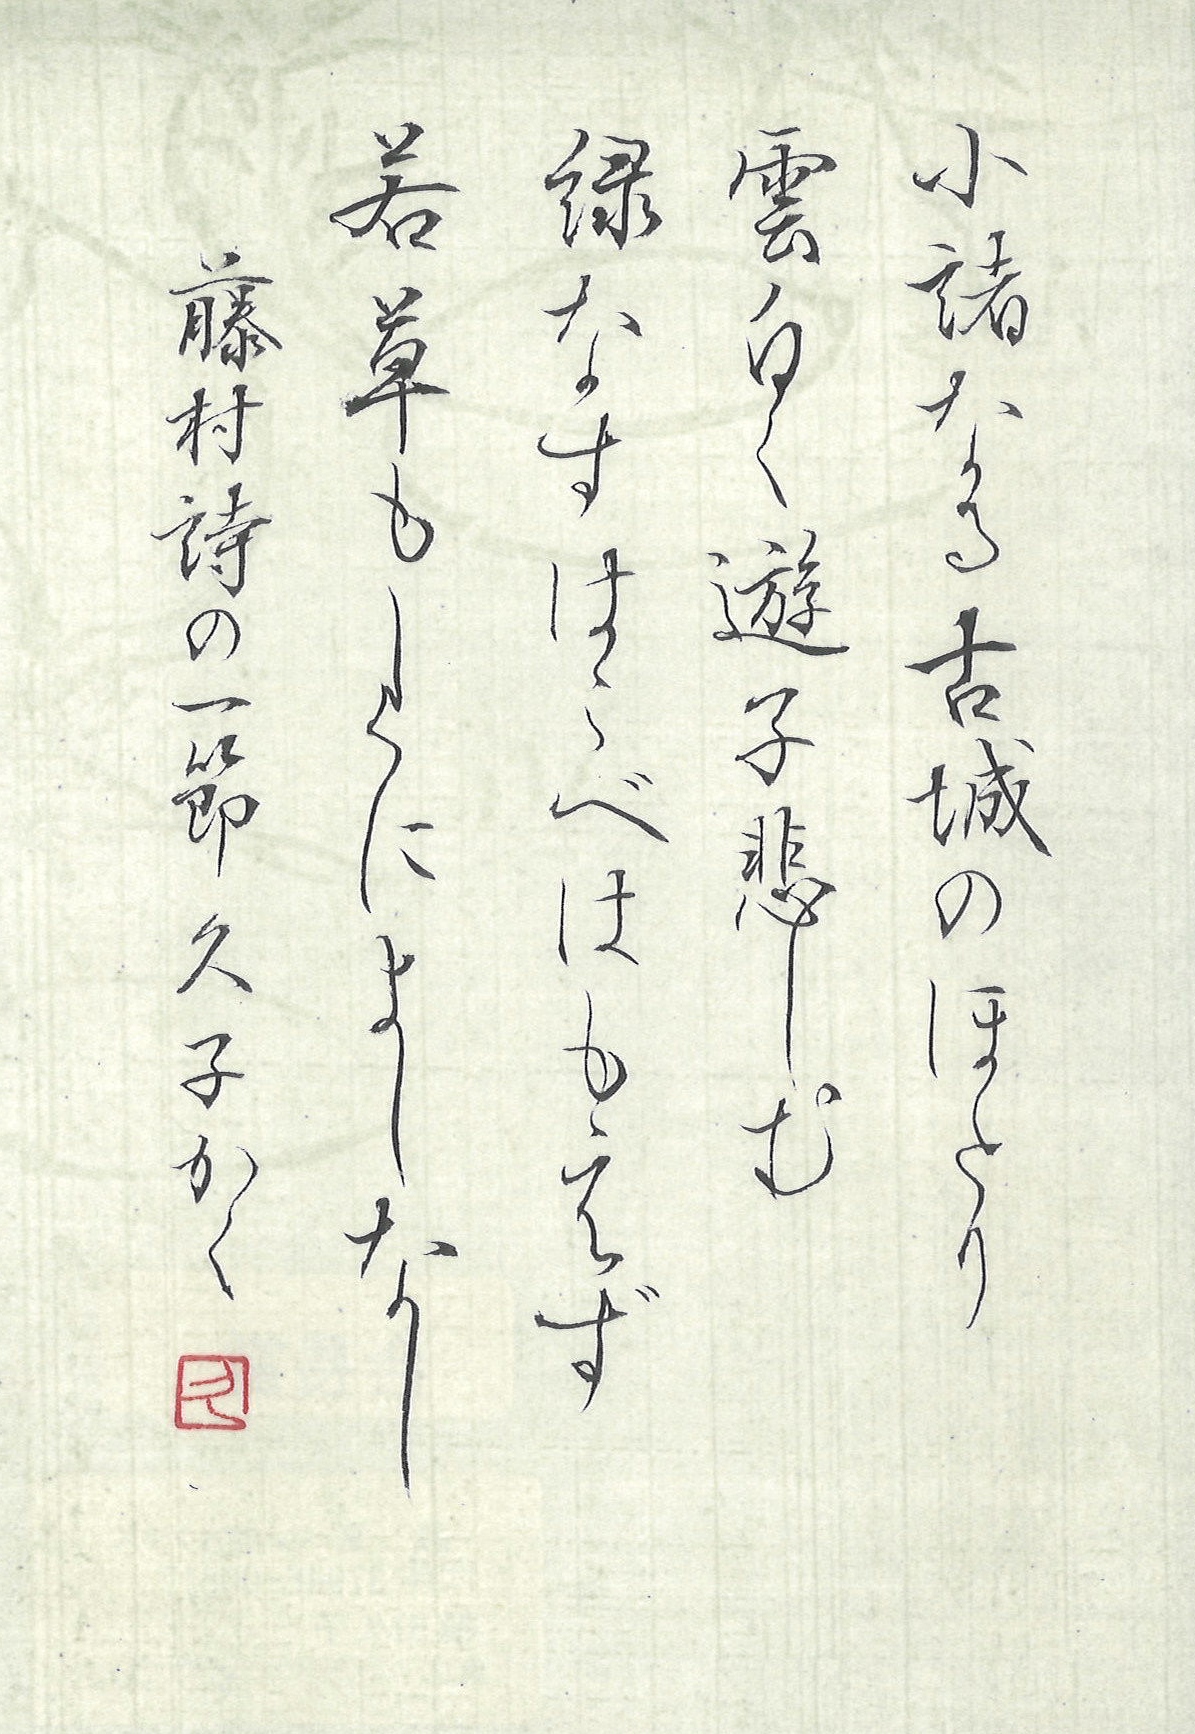 小諸なる古城のほとり
雲白く遊子悲しむ
緑なすはこべはもえず
若草もしくによしなし
藤村詩の一節 久子かく
久